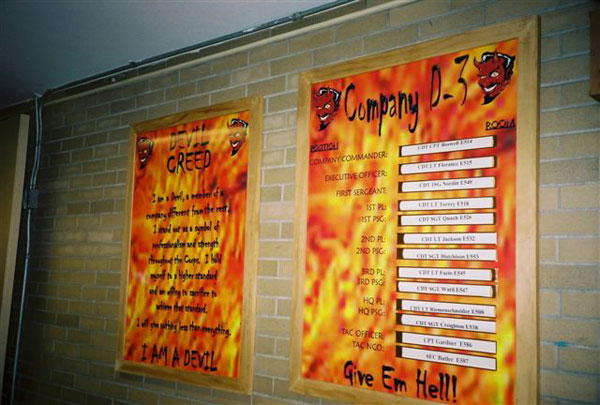 DEVIL
CREED
I am a Devil, a member of a
company different from the rest.
I stand out as a symbol of
professionalism and strength
throughout the Corps. I hold
myself to a higher standard
and am willing to sacrifice to
achieve that standard.
I will give nothing less than everything.
I AM A DEVIL
Company D-3
POSITION
ROOM
COMPANY COMMANDER:
CDT CPT Boswell E514
EXECUTIVE OFFICER:
CDT LT Florance E515
FIRST SERGEANT:
CDT 1SG Nordin E549
1ST PL:
CDT LT Torrey E518
1ST PSG:
CDT SGT Quach E526
2ND PL:
CDT LT Jackson E532
2ND PSG:
CDT SGT Hutchison E553
3RD PL:
CDT LT Fazio E545
3RD PSG:
CDT SGT Ward E547
HQ PL:
CDT LT E508
HQ PSG:
CDT SGT Creighton E538
TAC OFFICER:
CPT Gardner E586
TAC NCO:
SFC Butler E587
Give Em Hell!